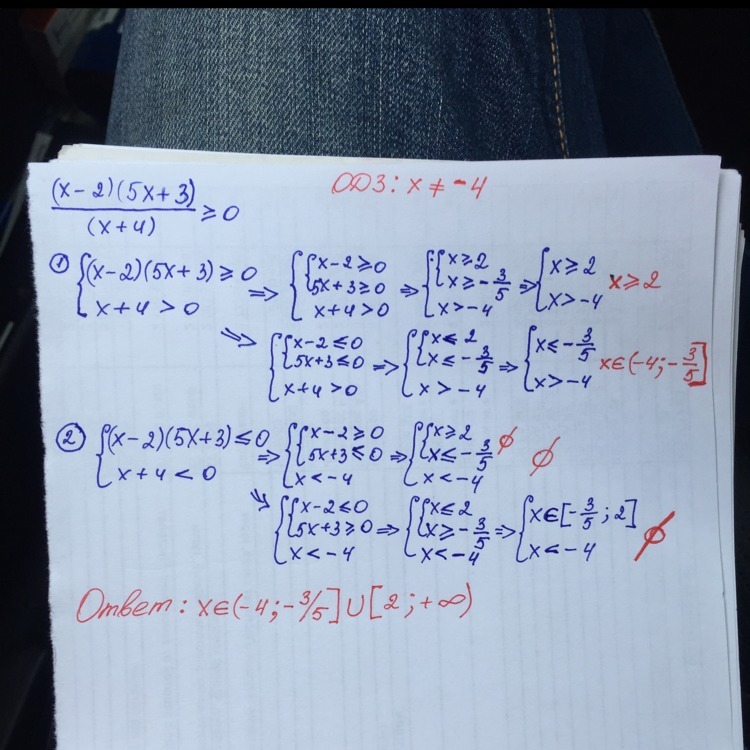 (x-2)(5x+3)/(x+4) ≥ 0 ОДЗ: x ≠ -4
① { (x-2)(5x+3) ≥ 0 ; x+4 > 0 ⇒ { { x-2 ≥ 0 ; 5x+3 ≥ 0 ; x+4 > 0 ⇒ { { x ≥ 2 ; x ≥ -3/5 ; x > -4 ⇒ { x ≥ 2 ; x > -4 x ≥ 2
⇒ { { x-2 ≤ 0 ; 5x+3 ≤ 0 ; x+4 > 0 ⇒ { { x ≤ 2 ; x ≤ -3/5 ; x > -4 ⇒ { x ≤ -3/5 ; x > -4 x∈(-4;-3/5]
② { (x-2)(5x+3) ≤ 0 ; x+4 < 0 ⇒ { { x-2 ≥ 0 ; 5x+3 ≤ 0 ; x < -4 ⇒ { { x ≥ 2 ; x ≤ -3/5 ∅ ; x < -4 ∅
⇒ { { x-2 ≤ 0 ; 5x+3 ≥ 0 ; x < -4 ⇒ { { x ≤ 2 ; x ≥ -3/5 ; x < -4 ⇒ { x∈[-3/5;2] ; x < -4 ∅
Ответ: x∈(-4;-3/5]∪[2;+∞)